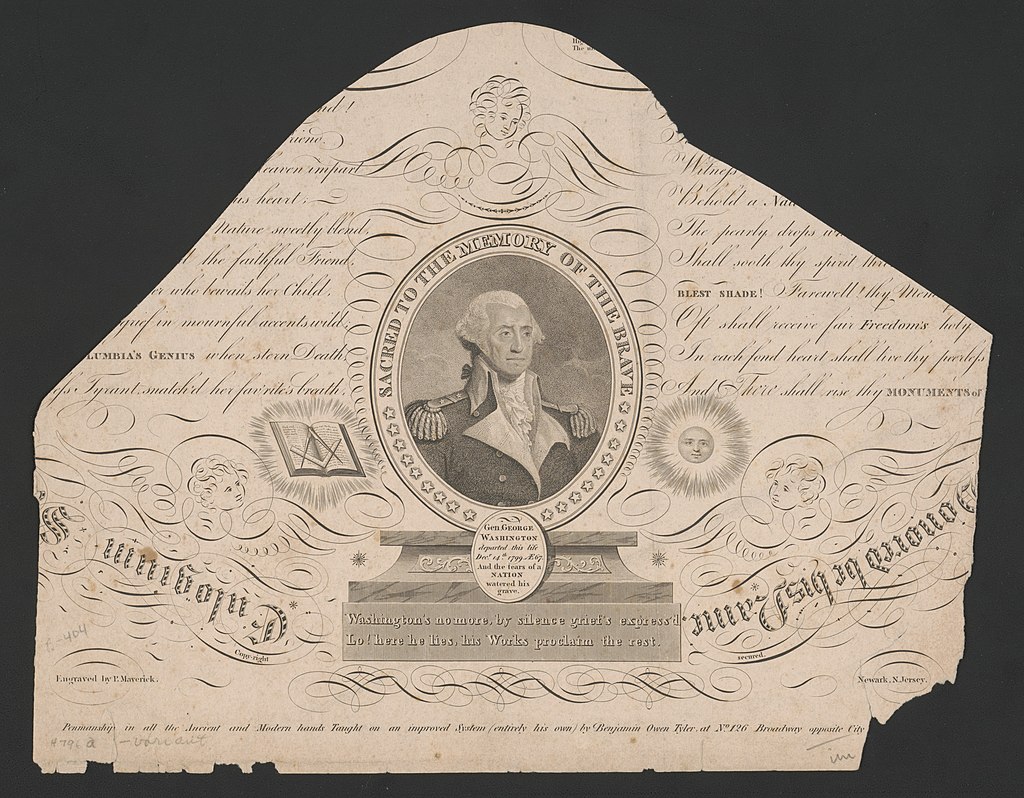 The
nd!
riend.
eaven impart
his heart;
Nature sweetly blend,
the faithful Friend.
er who bewails her Child.
grief in mournful accents wild,
LUMBIA'S GENIUS when stern Death,
Tyrant, snatch'd her fav'rite's breath.
Witness
Behold a Nat
The pearly drops
Shall sooth thy spirit thr
BLEST SHADE! Farewell! thy Mem
Oft shall receive fair Freedom's holy
In each fond heart shall live thy peerless
And There shall rise thy MONUMENTS of
SACRED TO THE MEMORY OF THE BRAVE
Gen. GEORGE
WASHINGTON
departed this life
Decr. 14th 1799 Æ 67.
And the tears of a
NATION
watered his
grave.
Washington's no more, by silence grief's express'd
Lo! here he lies, his Works proclaim the rest.
Eulogium
Honored be his Fame
Copy-right
secured.
Engraved by P. Maverick.
Newark, N. Jersey.
Penmanship in all the Ancient and Modern hands Taught on an improved System (entirely his own) by Benjamin Owen Tyler, at No. 126 Broadway opposite City
variant